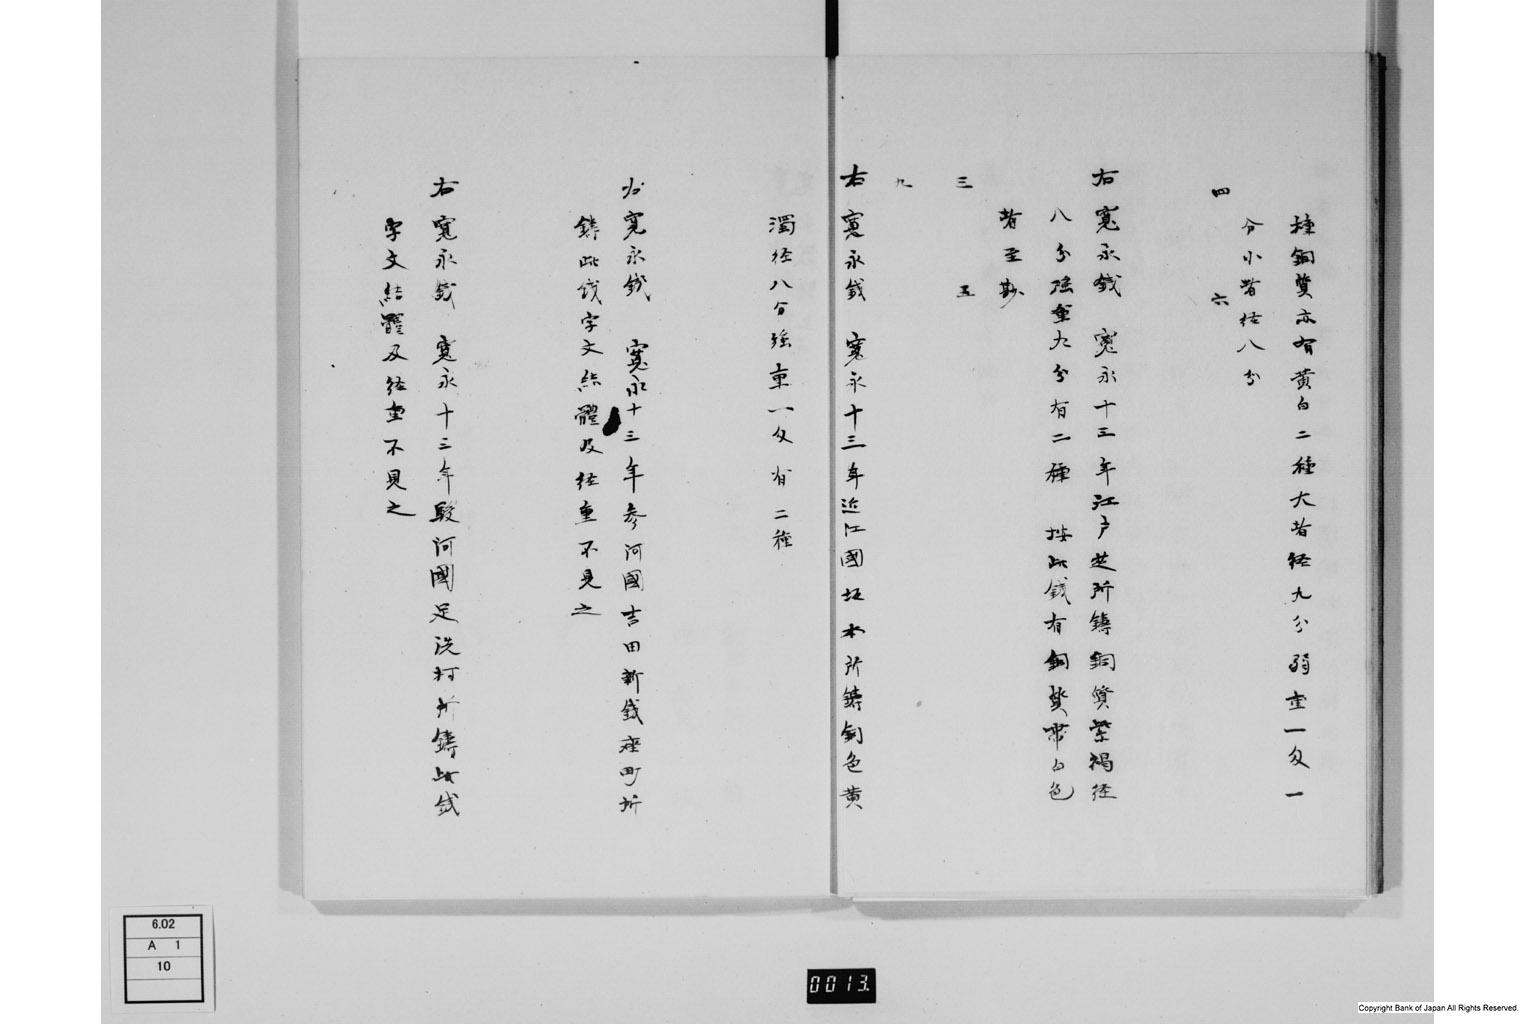 種銅質亦有黄白二種大者径九分弱重一匁一
分小者径八分
四 六
右寛永銭 寛永十三年江戸芝所鋳銅質紫褐径
八分強重九分有二種 按此銭有銅質帯白色
者至尠
三 五
九
右寛永銭 寛永十三年近江國坂本所鋳銅色黄
濁径八分強重一匁有二種
右寛永銭 寛永十三年参河國吉田新銭座町所
鋳此銭字文結體及径重不見之
右寛永銭 寛永十三年駿河國足洗村所鋳此銭
字文結體及径重不見之
6.02
A 1
10
0013.
Copyright Bank of Japan All Rights Reserved.